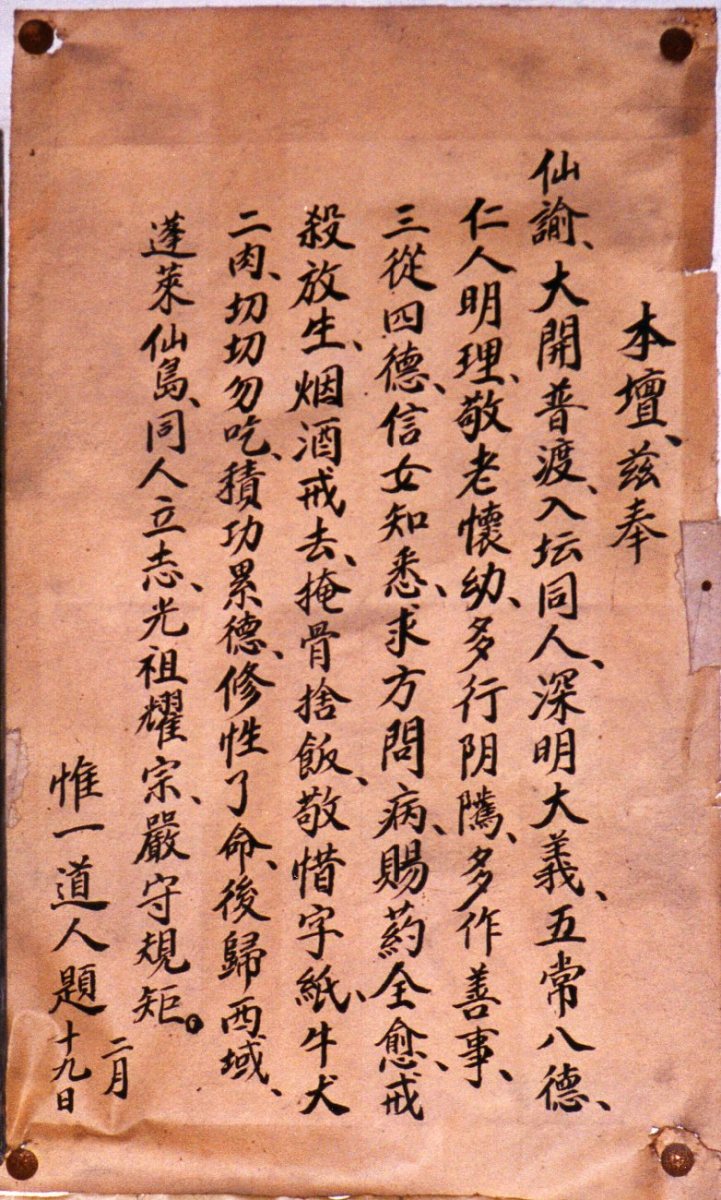 本壇、兹奉
仙諭、大開普渡、入坛同人、深明大義、五常八德、
仁人明理、敬老懷幼、多行阴隲、多作善事、
三從四德、信女知悉、求方問病、賜葯全愈、戒
殺放生、烟酒戒去、掩骨捨飯、敬惜字紙、牛犬
二肉、切切勿吃、積功累德、修性了命、後歸西域、
蓬萊仙島、同人立志、光祖耀宗、嚴守規矩。
惟一道人題
二月
十九日